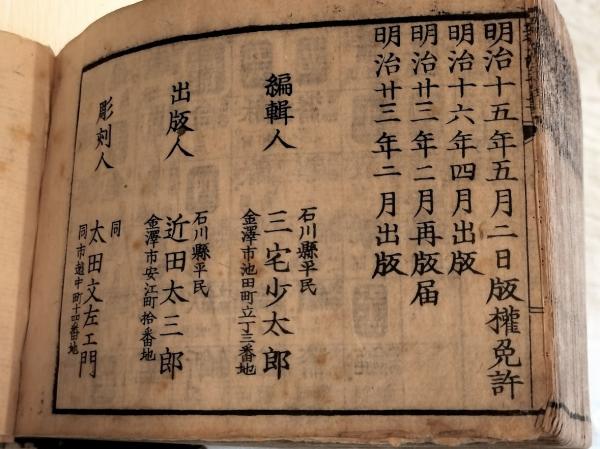 明治十五年五月二日版權免許
明治十六年四月出版
明治廿三年二月再版届
明治廿三年二月出版
編輯人
石川縣平民
三宅少太郎
金澤市池田町立丁三番地
出版人
石川縣平民
近田太三郎
金澤市安江町拾番地
彫刻人
同
太田文左エ門
同市越中町十四番地